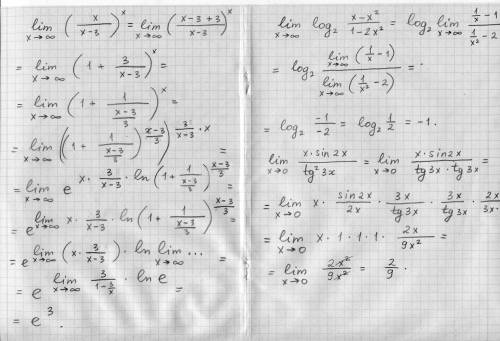 lim x→∞ (x/(x-3))^x = lim x→∞ ((x-3+3)/(x-3))^x
= lim x→∞ (1 + 3/(x-3))^x =
= lim x→∞ (1 + 1/((x-3)/3))^x =
= lim x→∞ ((1 + 1/((x-3)/3))^((x-3)/3))^(3/(x-3) · x) =
= lim x→∞ e^(x · 3/(x-3) · ln(1 + 1/((x-3)/3))^((x-3)/3)) =
= e^(lim x→∞ x · 3/(x-3) · ln(1 + 1/((x-3)/3))^((x-3)/3)) =
= e^(lim x→∞ (x · 3/(x-3)) · ln lim x→∞ ...) =
= e^(lim x→∞ 3/(1-3/x) · ln e) =
= e^3.
lim x→∞ log₂ (x-x²)/(1-2x²) = log₂ lim x→∞ (1/x -1)/(1/x² -2)
= log₂ (lim x→∞ (1/x -1))/(lim x→∞ (1/x² -2)) =
= log₂ (-1)/(-2) = log₂ 1/2 = -1.
lim x→0 (x·sin2x)/(tg²3x) = lim x→0 (x·sin2x)/(tg3x·tg3x) =
= lim x→0 x · sin2x/2x · 3x/tg3x · 3x/tg3x · 2x/3x·
= lim x→0 x·1·1·1· 2x/9x² =
= lim x→0 2x²/9x² = 2/9.